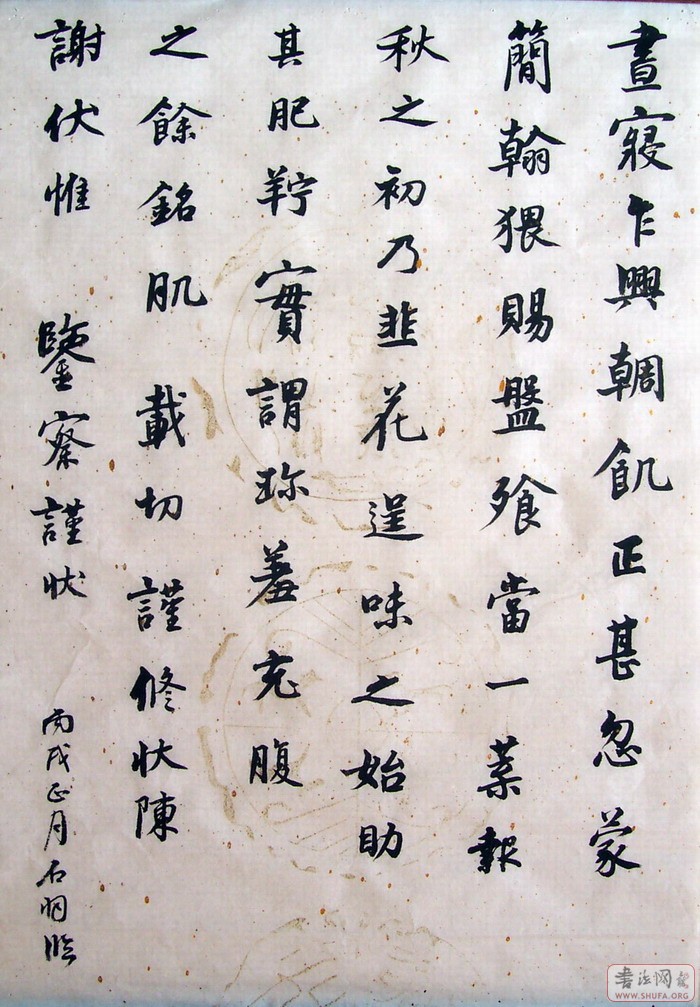 晝寢乍興輖飢正甚忽蒙
簡翰猥賜盤飧當一葉報
秋之初乃韭花逞味之始助
其肥羜實謂珍羞充腹
之餘銘肌載切謹修狀陳
謝伏惟 鑒察謹狀
丙戌正月石臨
書法网
WWW.SHUFA.ORG